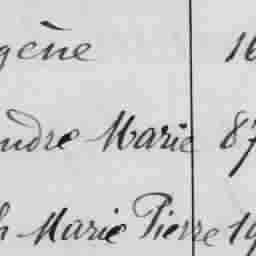 gène 16
ndre Marie 87
h Marie Pierre 19